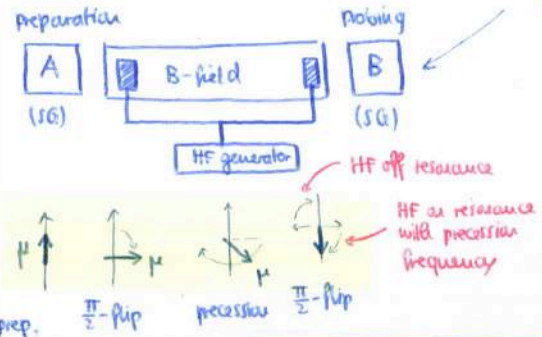 preparation
probing
A
B-field
B
(SG)
(SG)
HF generator
HF off resonance
HF on resonance
with precession
frequency
μ
μ
μ
prep.
π/2-flip
precession
π/2-flip